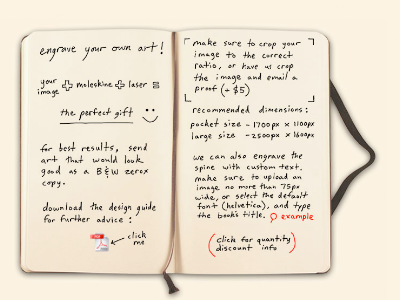 engrave your own art!
your image + moleskine + laser =
the perfect gift
for best results, send
art that would look
good as a B&W zerox
copy.
download the design guide
for further advice:
click
me
make sure to crop your
image to the correct
ratio, or have us crop
the image and email a
proof (+ $5)
recommended dimensions:
pocket size - 1700px x 1100px
large size - 2500px x 1600px
we can also engrave the
spine with custom text.
make sure to upload an
image no more than 75px
wide, or select the default
font (helvetica), and type
the book's title. example
(click for quantity
discount info)